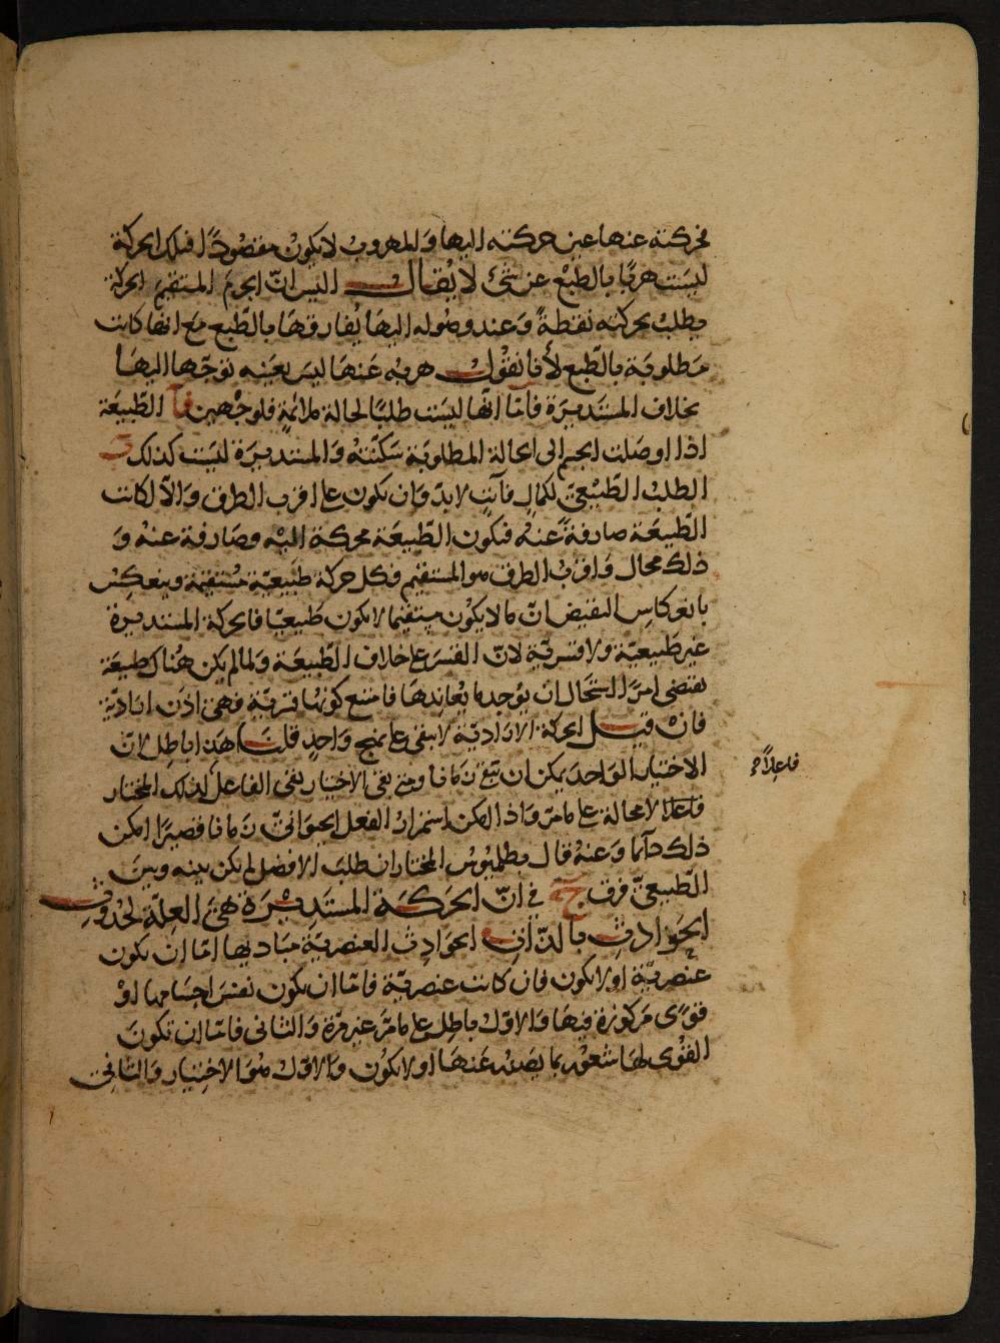 فحركته عنها عين حركته اليها والمهروب لا يكون مقصودًا فتلك الحركة
ليست هربًا بالطبع عن شئ لا يقال اليس انّ الجرم المستقيم الحركة
يطلب بحركته نقطةً وعند وصوله اليها يفارقها بالطّبع مع انها كانت
مطلوبة بالطّبع لأنا نقول هربه عنها ليس بعينه توجّهها اليها
بخلاف المستديرة فأمّا انّها ليست طلبًا لحالة ملائمةٍ فلوجهين آ الطّبيعة
اذا اوصلت الجسم الى الحالة المطلوبة سكّنته والمستديرة ليست كذلك ب
الطلب الطّبيعيّ لكمالٍ فآئتٍ لا بدّ وان تكون على اقرب الطرق والّا لكانت
الطّبيعة صارفةً عنه فتكون الطّبيعة محركة اليه وصارفة عنه و
ذلك محال واقرب الطرق هو المستقيم فكل حركة طبيعيّة مستقيمة وينعكس
بانعكاس النقيض انّ ما لا يكون مستقيمًا لا يكون طبيعيّا فالحركة المستديرة
غير طبيعيّة ولا قسريّة لانّ القسر على خلاف الطّبيعة ولمّا لم يكن هناك طبيعة
تقتضى امرًا استحال ان يوجد ما يعاندها فامتنع كونها قسريّة فهى اذن اراديّة
فان قيل الحركة الاراديّة لا تبقى على نهج واحدٍ قلنا هذا باطل لانّ
الاختيار الواحد يمكن ان يبقى زمانا ومتى بقى الاختيار بقى الفاعل لذلك المختار
فاعلا لا محالة على ما مرّ واذا امكن استمرار الفعل الحيوانىّ زمانا قصيرًا امكن
ذلك دآئما وعنه قال بطلميوس المختار ان طلب الافضل لم يكن بينه وبين
الطّبيعيّ فرق ج في انّ الحركة المستديرة هى العلّة لحدوث
الحوادث بالذّات الحوادث العنصريّة مباديها امّا ان يكون
عنصريّة او لا يكون فان كانت عنصريّة فامّا ان يكون نفس اجسامها او
قوًى مركوزة فيها والاوّل باطل على ما مرّ غير مرّة والثانى فامّا ان تكون
القوى لها شعور بما يصدر عنها او لا يكون والاوّل هو الاختيار والثانى
فاعلاً